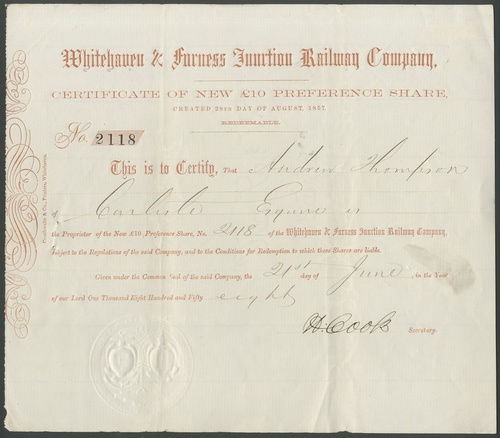 Whitehaven & Furness Junction Railway Company.
CERTIFICATE OF NEW £10 PREFERENCE SHARE,
CREATED 28TH DAY OF AUGUST, 1857.
REDEEMABLE.
No. 2118
This is to Certify, That Andrew Thompson
of Carlisle Esquire is
the Proprietor of the New £10 Preference Share, No. 2118 of the Whitehaven & Furness Junction Railway Company,
subject to the Regulations of the said Company, and to the Conditions for Redemption to which these Shares are liable.
Given under the Common Seal of the said Company, the 21st day of June, in the Year
of our Lord One Thousand Eight Hundred and Fifty eight
H. Cook Secretary.